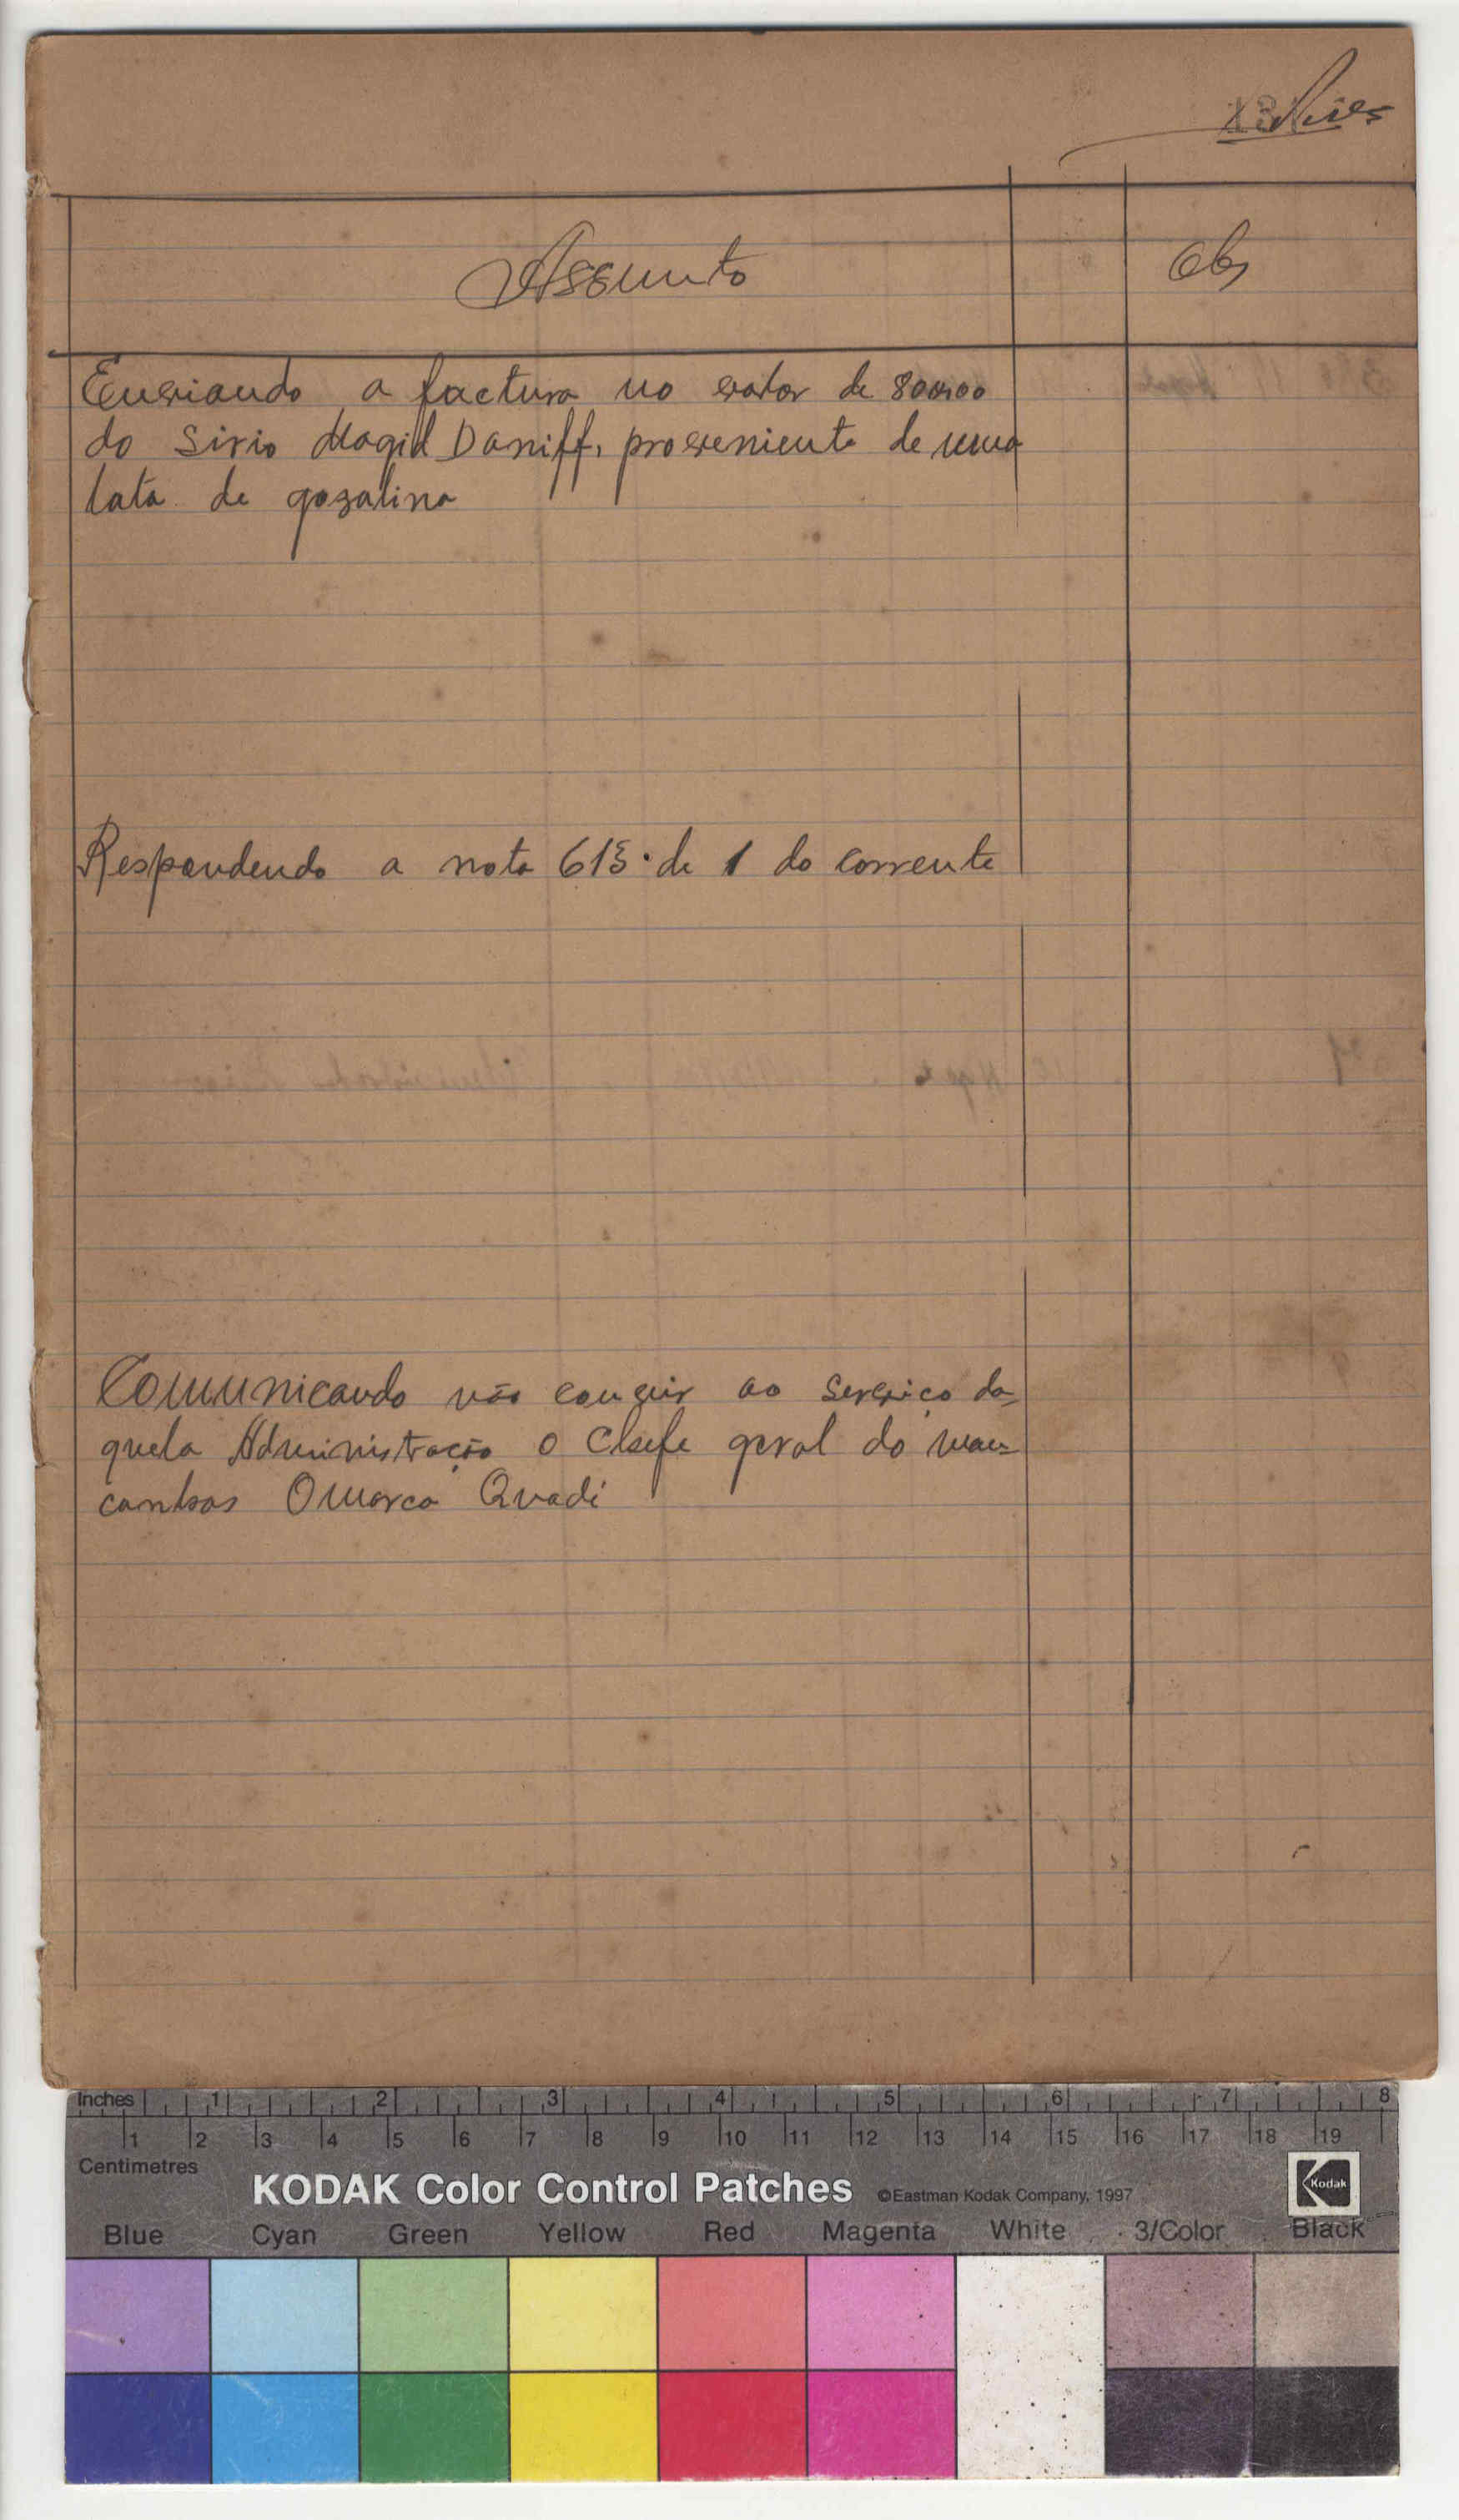 Assunto
Obs
Enviando a factura no valor de 80000
do sirio Magid Daniff, proveniente de uma
lata de gazalina
Respondendo a nota 615 de 1 do corrente
Comunicando não convir ao serviço da-
quela Administração o Chefe geral do man-
canhas Omarca Quadi
Inches 1 2 3 4 5 6 7 8
1 2 3 4 5 6 7 8 9 10 11 12 13 14 15 16 17 18 19
Centimetres
KODAK Color Control Patches ©Eastman Kodak Company, 1997 Kodak
Blue Cyan Green Yellow Red Magenta White 3/Color Black